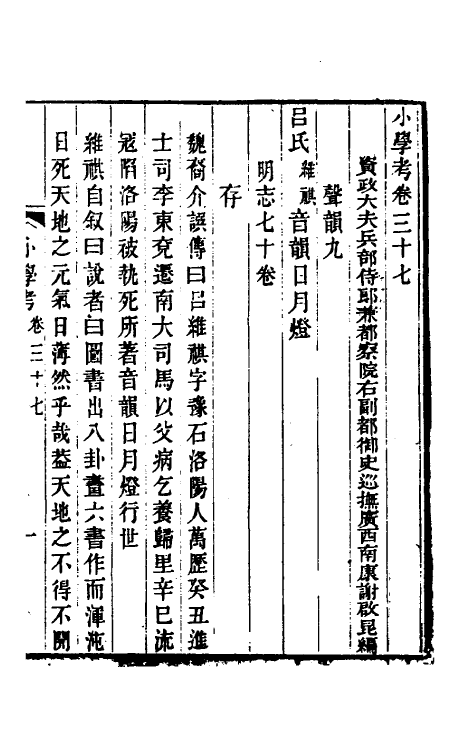 小學考卷三十七
資政大夫兵部侍郎兼都察院右副都御史巡撫廣西南康謝啟昆編
聲韻九
呂氏維祺音韻日月燈
明志七十卷
存
魏裔介誤傳曰呂維祺字豫石洛陽人萬歷癸丑進
士司李東兗遷南大司馬以父病乞養歸里辛巳流
寇陷洛陽被執死所著音韻日月燈行世
維祺自叙曰說者曰圖書出八卦畫六書作而渾沌
日死天地之元氣日薄然乎哉葢天地之不得不開
小學考卷三十七 一